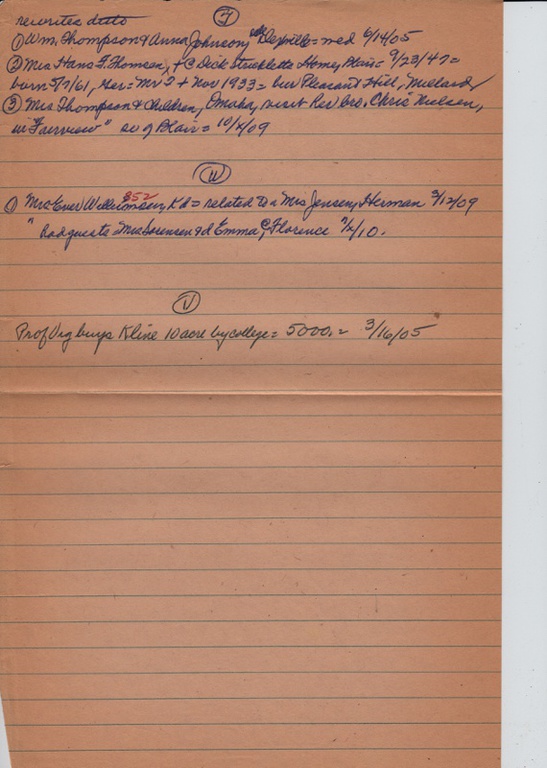 rewrites data
T
① Wm. Thompson & Anna Johnson, = wed 6/14/05
② Mrs Hans T. Thomsen, + C Dick Home, Blair = 9/23/47 =
born 5/7/61, Ger = Mr T + Nov 1933 = bur Pleasant Hill, Millard,
③ Mrs Thompson & children, Omaha, visit her bro. Chris Nielsen,
in "Fairview" sw of Blair = 10/4/09
W
852
① Mrs Ener Williamson, Kd = related to a Mrs Jensen, Herman 3/12/09
" had guests = Mrs Sorensen & d Emma, Florence
V
Prof Vig buys Kline 10 acre by college = 5000.= 3/16/05